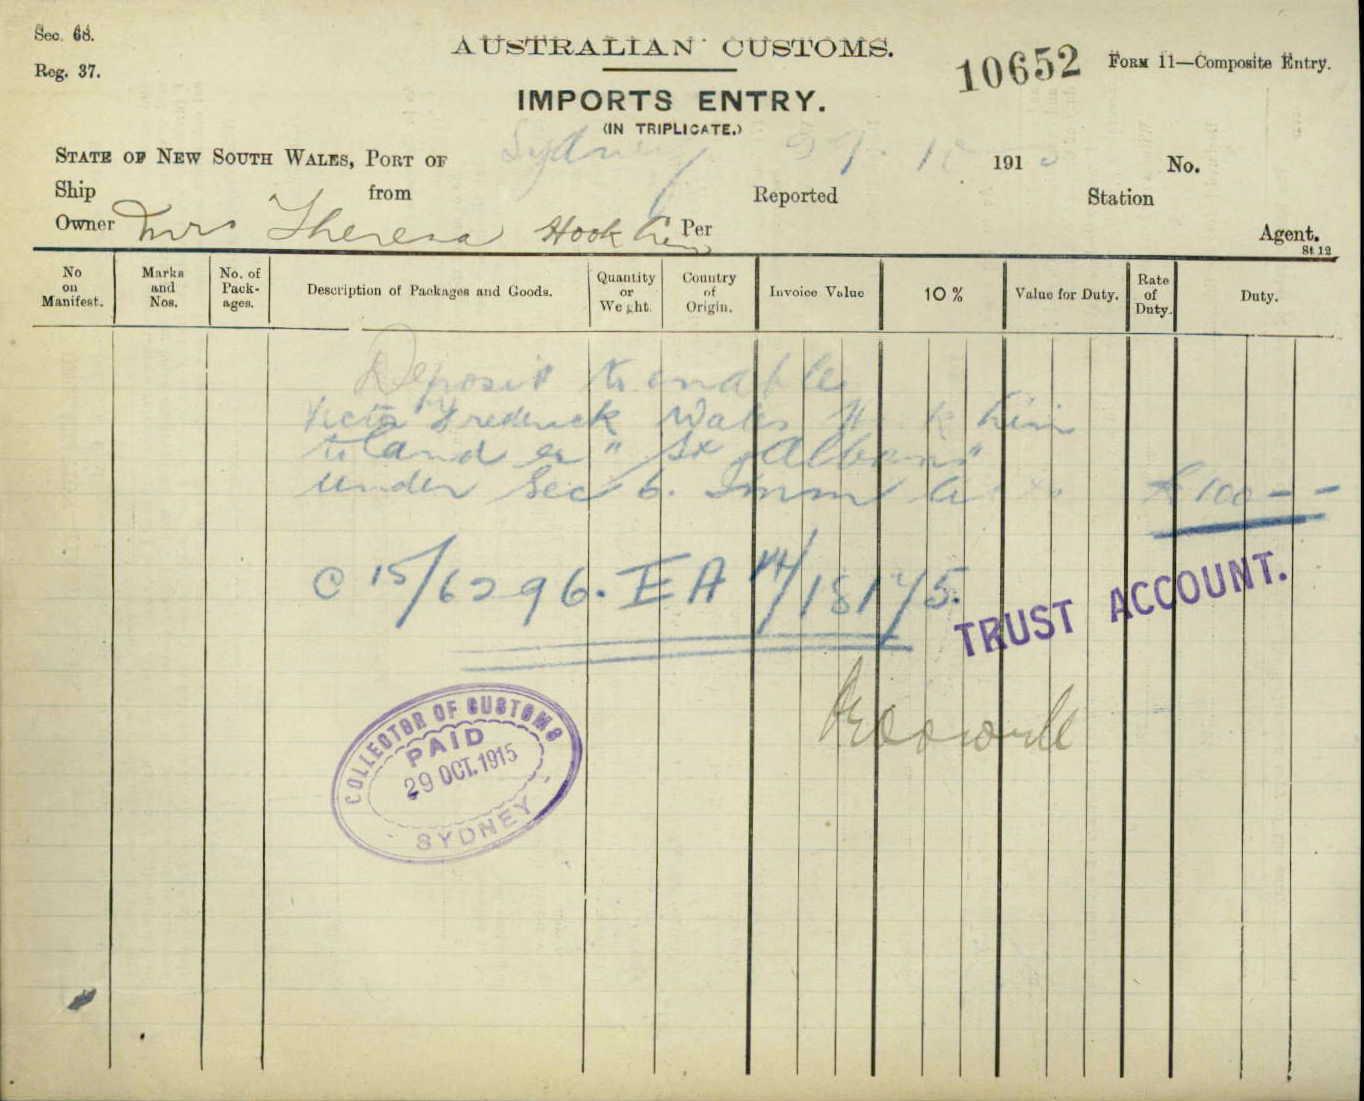 Sec. 68.
Reg. 37.
AUSTRALIAN CUSTOMS.
10652
FORM 11—Composite Entry.
IMPORTS ENTRY.
(IN TRIPLICATE.)
STATE OF NEW SOUTH WALES, PORT OF Sydney 29. 10 191 No.
Ship from Reported Station
Owner Mrs Theresa Hook Kim Per Agent.
St 12
No on Manifest.
Marks and Nos.
No. of Pack-ages.
Description of Packages and Goods.
Quantity or Weight.
Country of Origin.
Invoice Value
10 %
Value for Duty.
Rate of Duty.
Duty.
Deposit to enable
Victor Frederick Wales Hook Kim
to land ex "St Albans"
under Sec 6. Imm £100 - -
C 15/6296. EA 14/18175.
TRUST ACCOUNT.
COLLECTOR OF CUSTOMS
PAID
29 OCT. 1915
SYDNEY